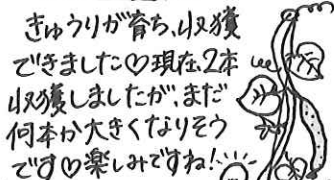 きゅうりが育ち、収獲
できました♡現在、2本
収獲しましたが、まだ
何本か大きくなりそう
です♡楽しみですね!